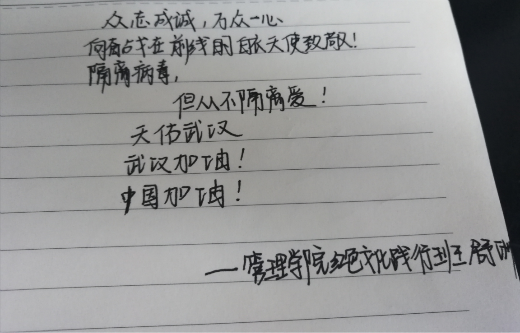 众志成诚，万众一心
向奋战在前线的白衣天使致敬！
隔离病毒，
但从不隔离爱！
天佑武汉
武汉加油！
中国加油！
——管理学院红色文化践行班王舒